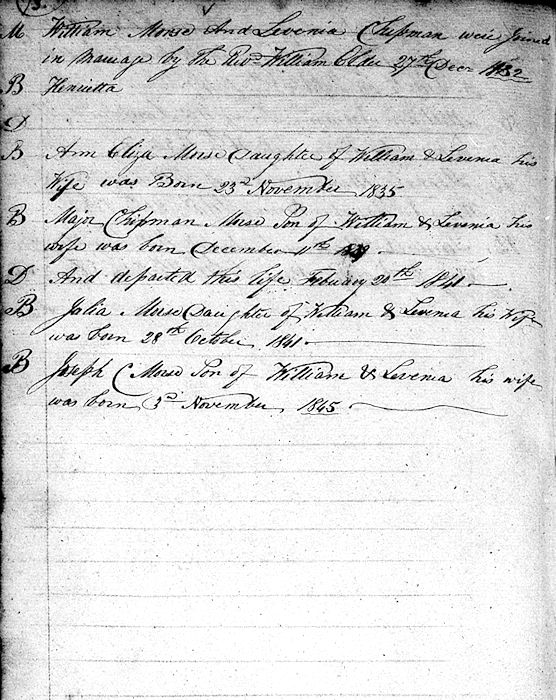 13.
M William Morse And Levenia Chipman were Joined
in Marriage by the Revd William Elder 27th Decr 1832
B Henrietta
D
B Ann Eliza Morse Daughter of William & Levenia his
Wife was Born 23rd November 1835
B Major Chipman Morse Son of William & Levenia his
wife was born December 11th
D And departed this life Febuary 20th 1841
B Julia Morse Daughter of William & Levenia his Wife
was born 28th October 1841
B Joseph C Morse Son of William & Levenia his wife
was born 3rd November 1845